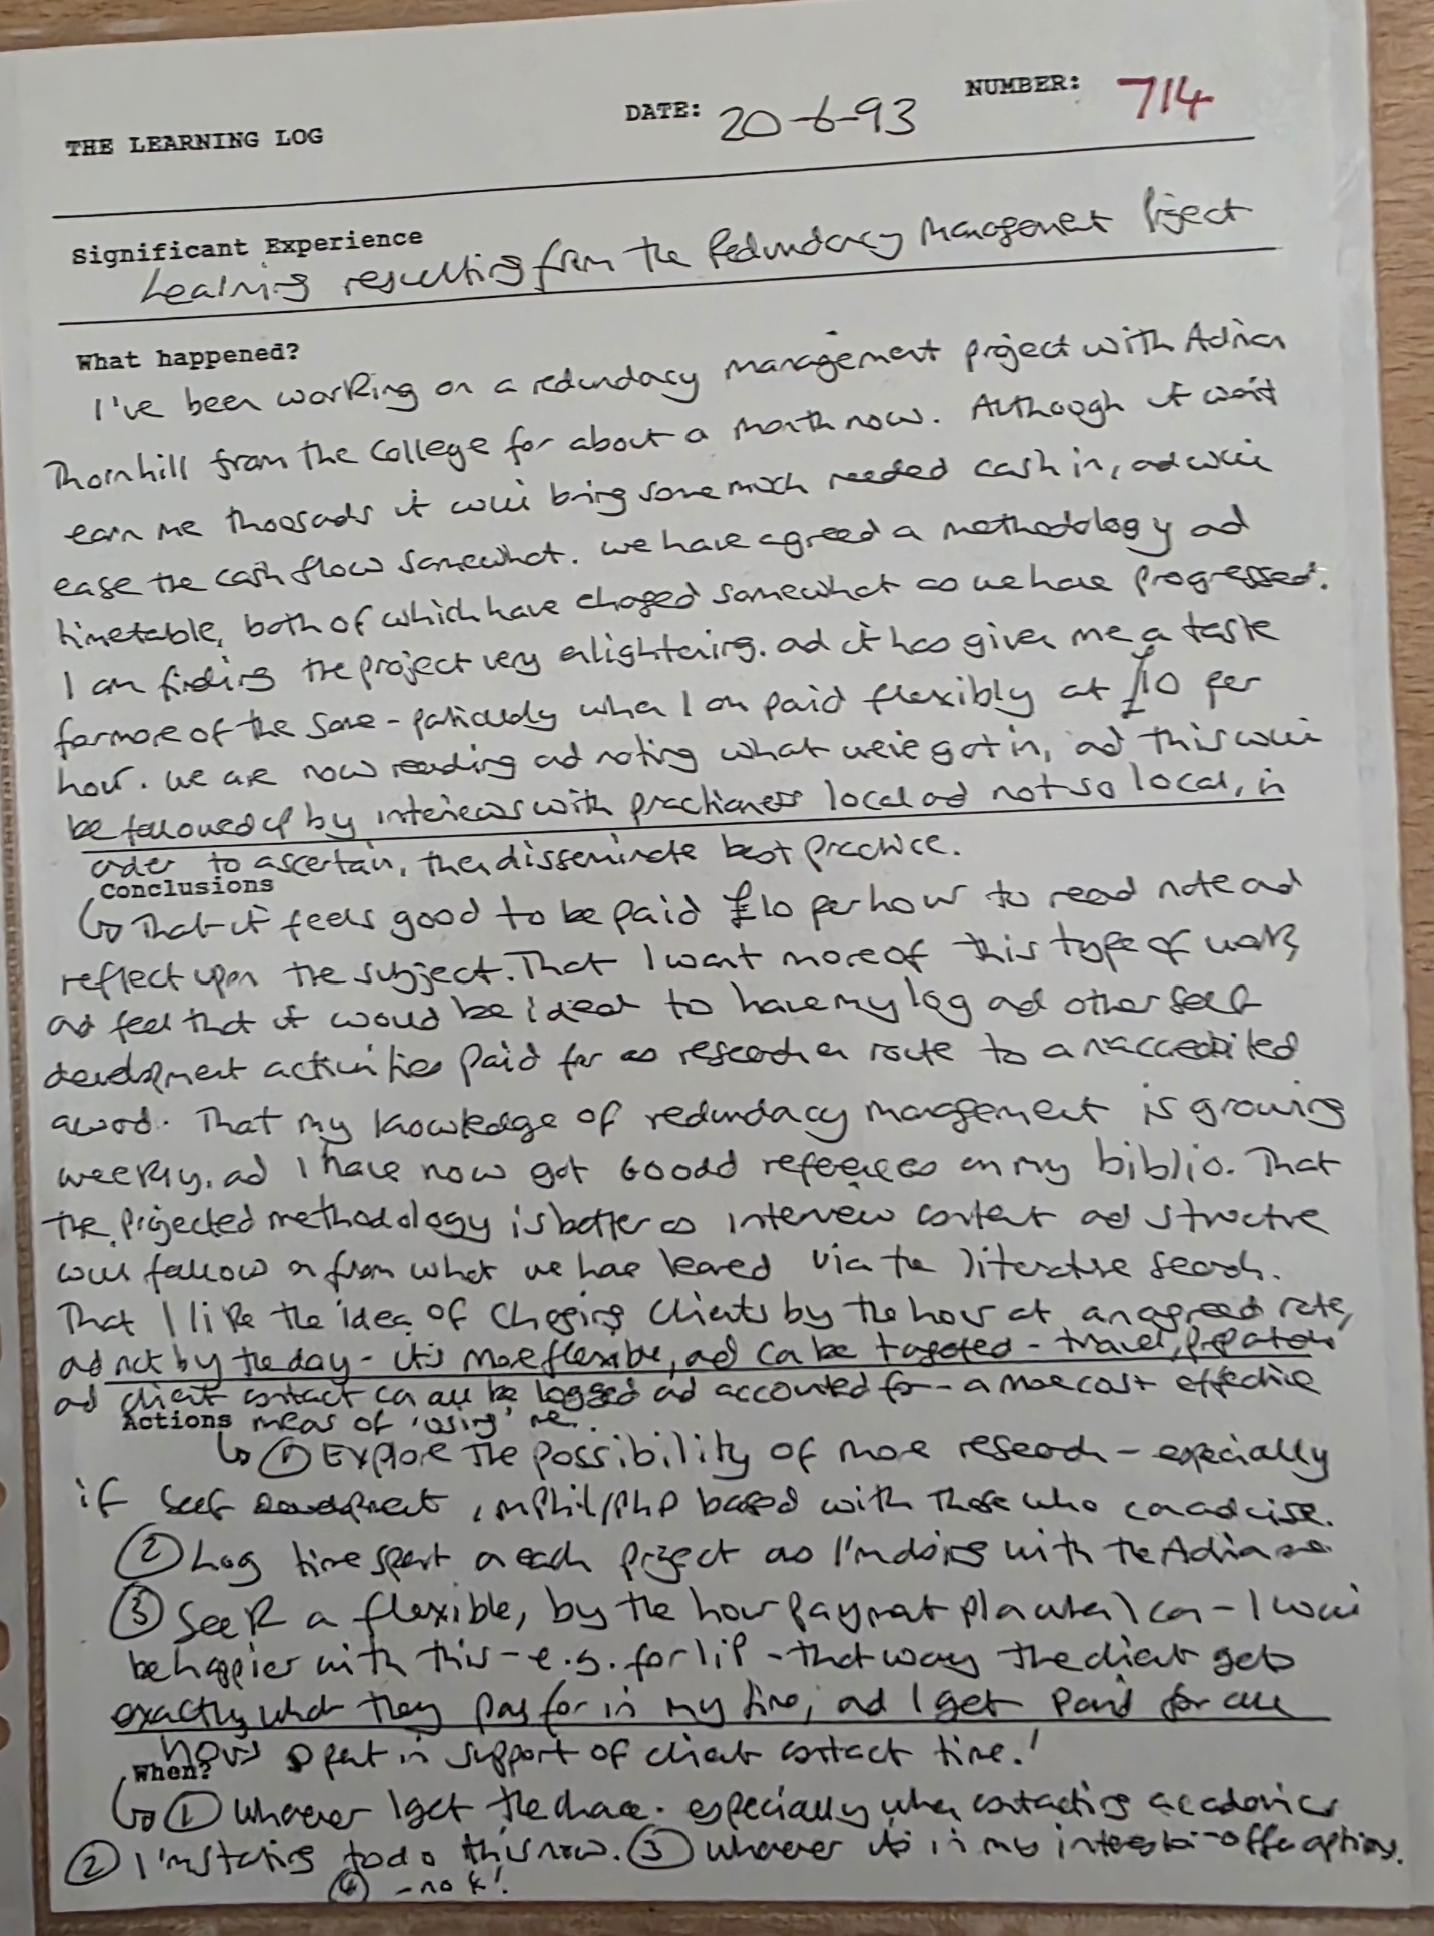 THE LEARNING LOG DATE: 20-6-93 NUMBER: 714
Significant Experience
Learning resulting from the Redundacy Management Project
What happened?
I've been working on a redundacy management project with Adrian
Thornhill from the College for about a month now. Although it won't
earn me thousads it will bring some much needed cash in, ad will
ease the cash flow somewhat. We have agreed a methodology ad
timetable, both of which have chaged somewhat as we have progressed.
I am finding the project very enlightening. ad it has given me a taste
for more of the same - particularly when I am paid flexibly at £10 per
hour. We are now reading ad noting what we've got in, ad this will
be followed up by interviews with practioners local ad not so local, in
order to ascertain, then disseminate best practice.
Conclusions
↳ That it feels good to be paid £10 per hour to read note ad
reflect upon the subject. That I want more of this type of work,
ad feel that it would be ideal to have my log ad other self
development activities paid for as research or route to an accredited
award. That my knowledge of redundacy management is growing
weekly, ad I have now got 6 good references on my biblio. That
the projected methodology is better as interview content ad structure
will follow on from what we have learned via the literature search.
That I like the idea of charging clients by the hour at an agreed rate,
ad not by the day - it's more flexible, ad can be targeted - travel, preparation
ad client contact can all be logged ad accounted for - a more cost effective
Actions means of 'using' me.
↳ ① Explore the possibility of more research - especially
if self development, MPhil/PhD based with those who can advise.
② Log time spent on each project as I'm doing with the Adrian one
③ Seek a flexible, by the hour payment plan when I can - I will
be happier with this - e.g. for IiP - that way the client gets
exactly what they pay for in my time, ad I get paid for all
hours spent in support of client contact time.!
When?
↳ ① Whenever I get the chance. especially when contacting academics
② I'm starting to do this now. ③ Whenever it's in my interest to offer options.
④ - no k!